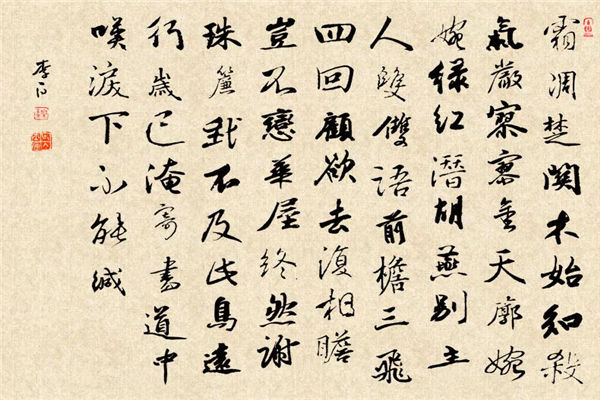 霜凋楚関木始知殺
氣嚴寥寥金天廓婉
婉緑紅潛胡燕別主
人雙雙語前檐三飛
四回顧欲去復相瞻
豈不戀華屋終然謝
珠簾我不及此鳥遠
行歲已淹寄書道中
嘆淚下不能緘
李白